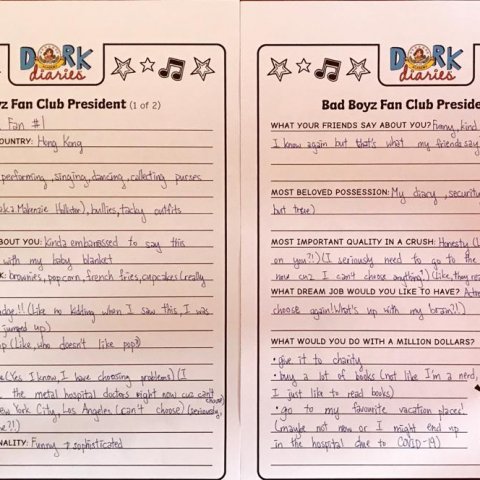 DORK
diaries
yz Fan Club President (1 of 2)
Fan #1
OUNTRY: Hong Kong
performing, singing, dancing, collecting purses
(aka Makenzie Hollister), bullies, tacky outfits
BOUT YOU: Kinda embarassed to say this
with my baby blanket
K: brownies, popcorn, french fries, cupcakes (really
udge!! (Like no kidding when I saw this, I was
jumped up)
p (Like, who doesn't like pop?)
(Yes I know, I have choosing problems) (I
the metal hospital doctors right now cuz can't
choose)
ew York City, Los Angeles (can't choose) (seriously,
e?!)
NALITY: Funny + sophisticated
DORK
diaries
Bad Boyz Fan Club Preside
WHAT YOUR FRIENDS SAY ABOUT YOU? Funny, kind
I know again but that's what my friends say
MOST BELOVED POSSESSION: My diary, security
but true)
MOST IMPORTANT QUALITY IN A CRUSH: Honesty (L
on you?!) (I seriously need to go to the
now cuz I can't choose anything!) (Like, they rea
WHAT DREAM JOB WOULD YOU LIKE TO HAVE? Actre
choose again! What's up with my brain?!)
WHAT WOULD YOU DO WITH A MILLION DOLLARS?
• give it to charity
• buy a lot of books (not like I'm a nerd,
I just like to read books)
• go to my favourite vacation places
(maybe not now or I might end up
in the hospital due to COVID-19)